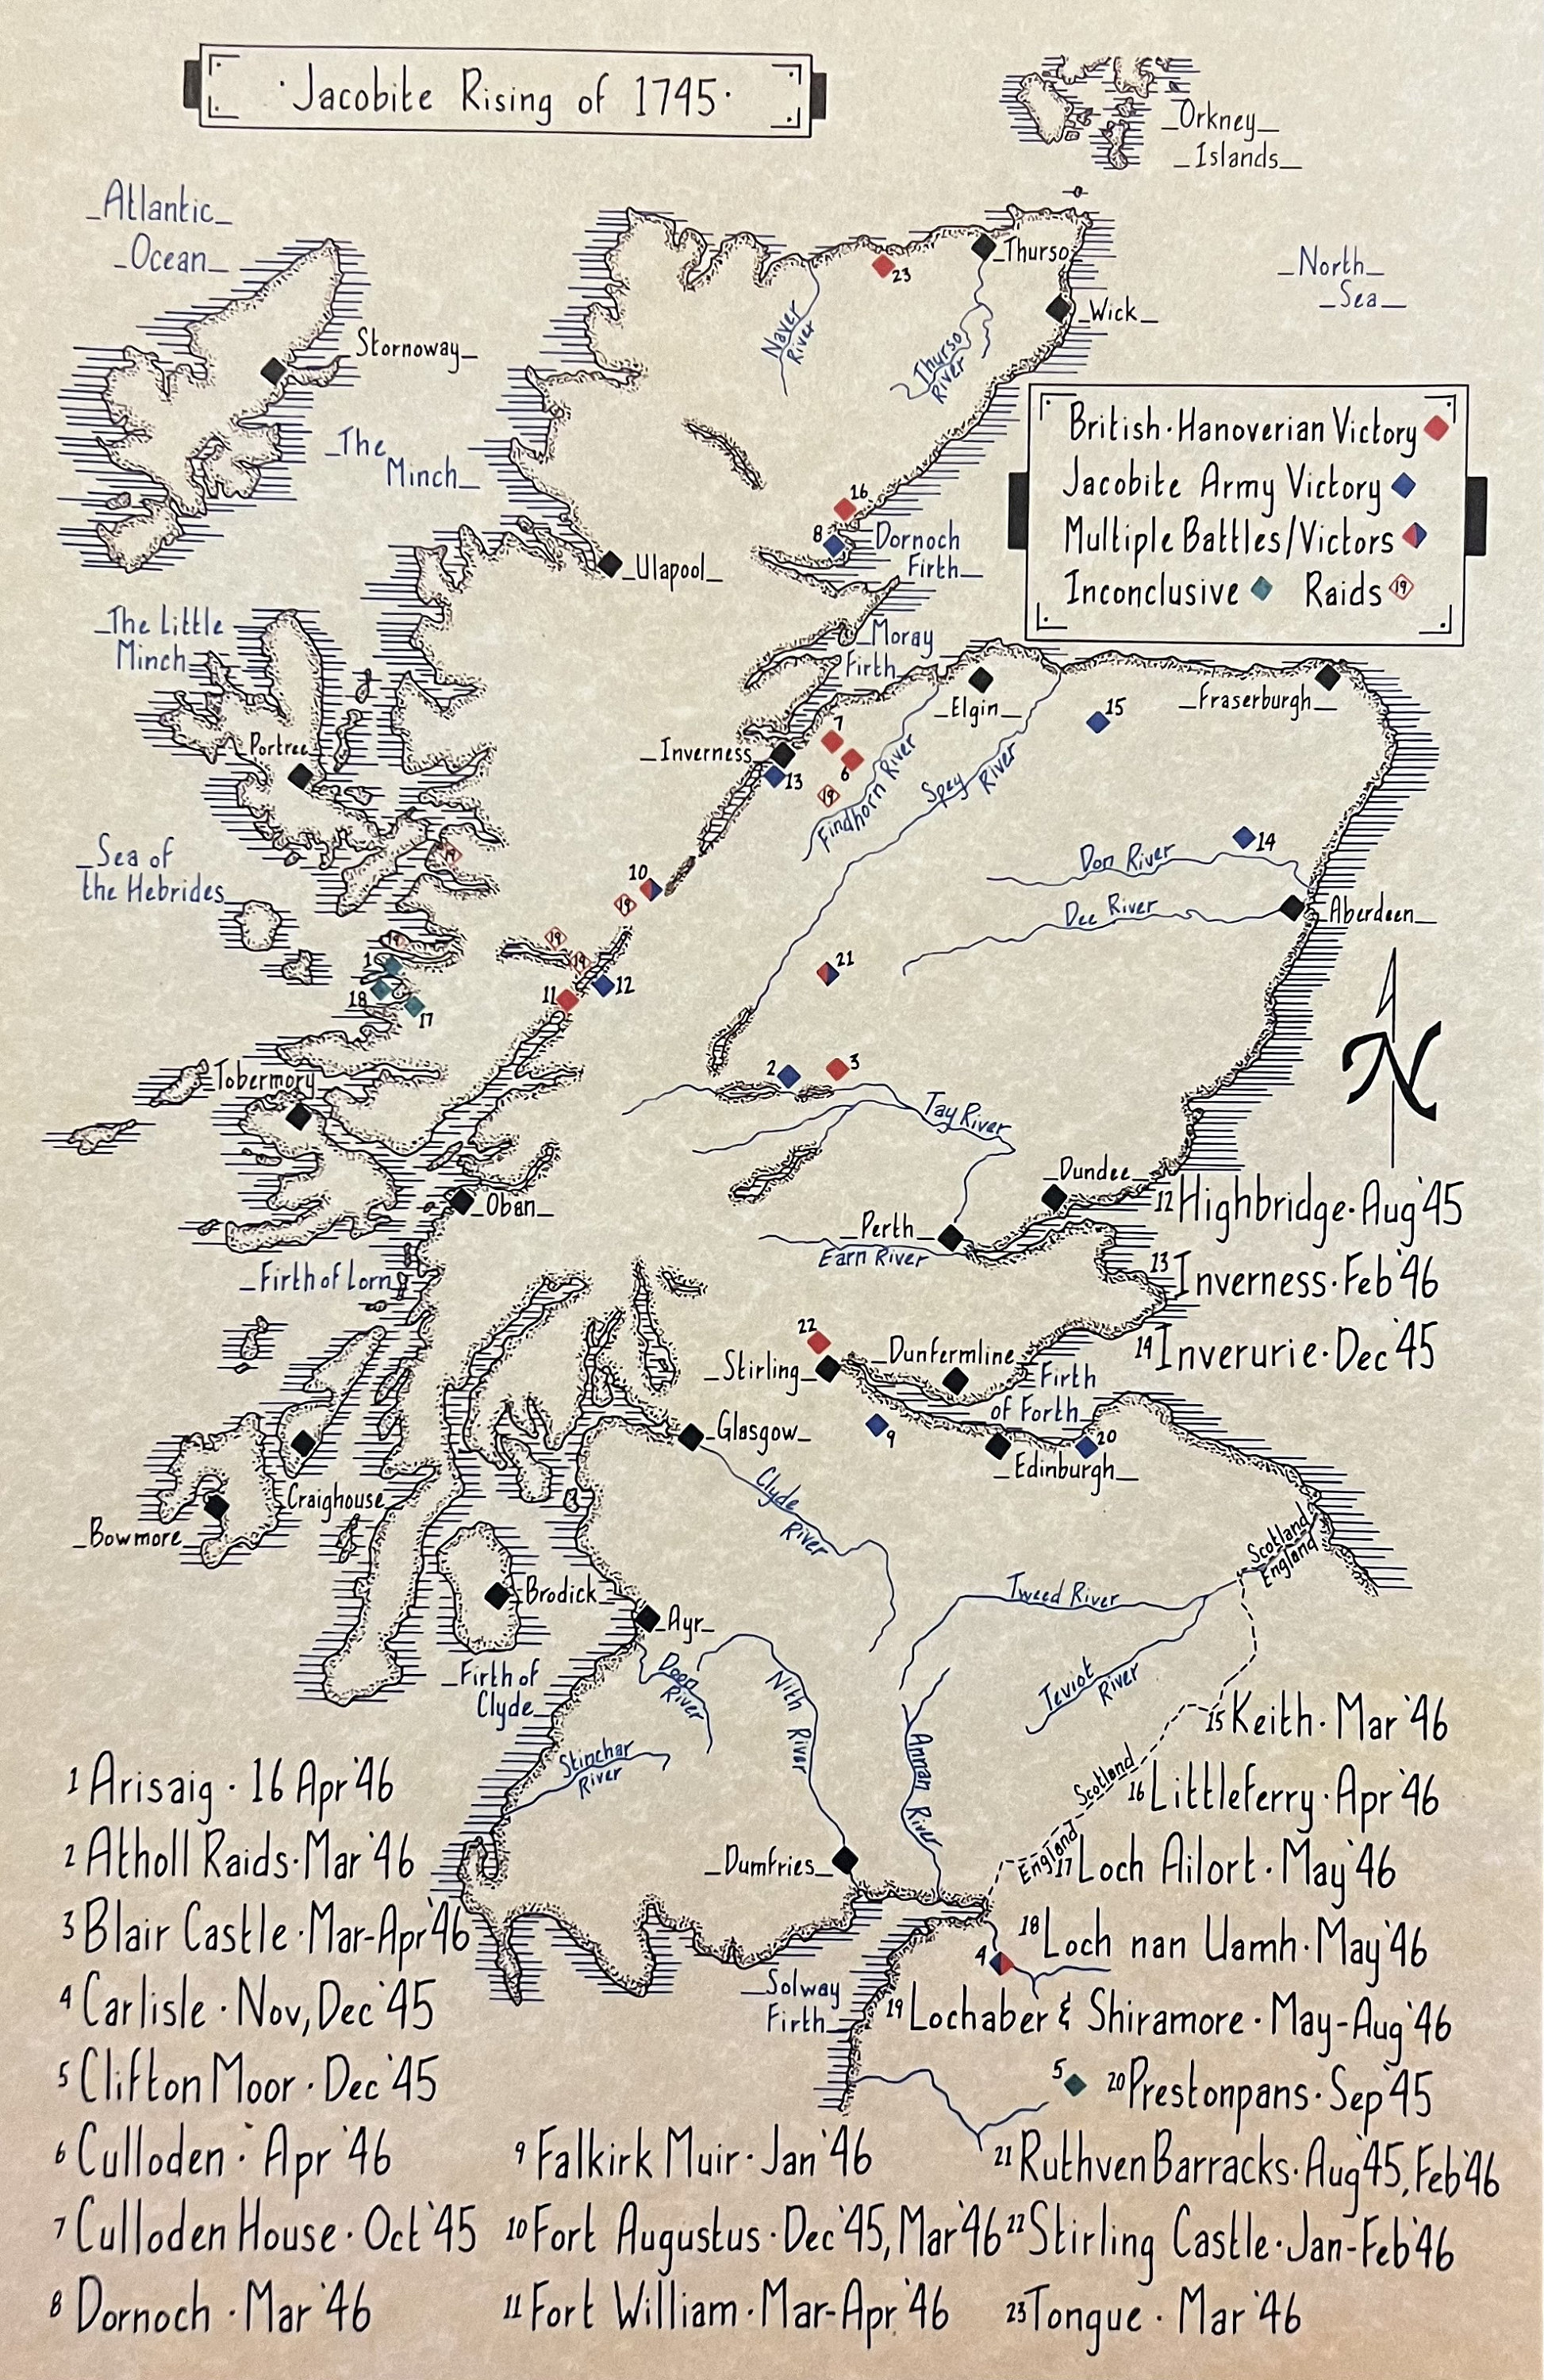 ·Jacobite Rising of 1745·
_Orkney_
_Islands_
_Atlantic_
_Ocean_
_Thurso
23
_North_
_Sea_
_Wick_
Naver
River
Thurso
River
_Stornoway_
_The
Minch_
British·Hanoverian Victory
Jacobite Army Victory
Multiple Battles/Victors
Inconclusive Raids 19
16
8
_Dornoch
Firth_
_Ulapool_
_The Little
Minch_
_Moray
Firth_
_Elgin_
_Fraserburgh_
15
_Portree_
_Inverness_
7
6
13
19
Findhorn River
Spey River
_Sea of
the Hebrides_
19
10
19
14
Don River
Dee River
_Aberdeen_
19
19
19
1
18
17
11
12
21
N
_Tobermory_
2
3
Tay River
_Dundee_
_Oban_
_Perth_
Earn River
12 Highbridge·Aug'45
13 Inverness·Feb'46
14 Inverurie·Dec'45
_Firth of Lorn_
22
_Stirling_
_Dunfermline_
_Firth
of Forth_
9
20
_Glasgow_
_Edinburgh_
_Craighouse_
_Bowmore_
Clyde
River
Scotland
England
_Brodick_
Tweed River
_Ayr_
_Firth of
Clyde_
Doon
River
Nith River
Teviot
River
Annan River
Stinchar
River
_Dumfries_
Scotland
England
4
_Solway
Firth_
5
1 Arisaig · 16 Apr'46
2 Atholl Raids·Mar'46
3 Blair Castle·Mar-Apr'46
4 Carlisle·Nov,Dec'45
5 Clifton Moor·Dec'45
6 Culloden· Apr'46
7 Culloden House·Oct'45
8 Dornoch·Mar'46
9 Falkirk Muir·Jan'46
10 Fort Augustus·Dec'45,Mar'46
11 Fort William·Mar-Apr'46
15 Keith·Mar'46
16 Littleferry·Apr'46
17 Loch Ailort·May'46
18 Loch nan Uamh·May'46
19 Lochaber & Shiramore·May-Aug'46
20 Prestonpans·Sep'45
21 Ruthven Barracks·Aug'45,Feb'46
22 Stirling Castle·Jan-Feb'46
23 Tongue·Mar'46